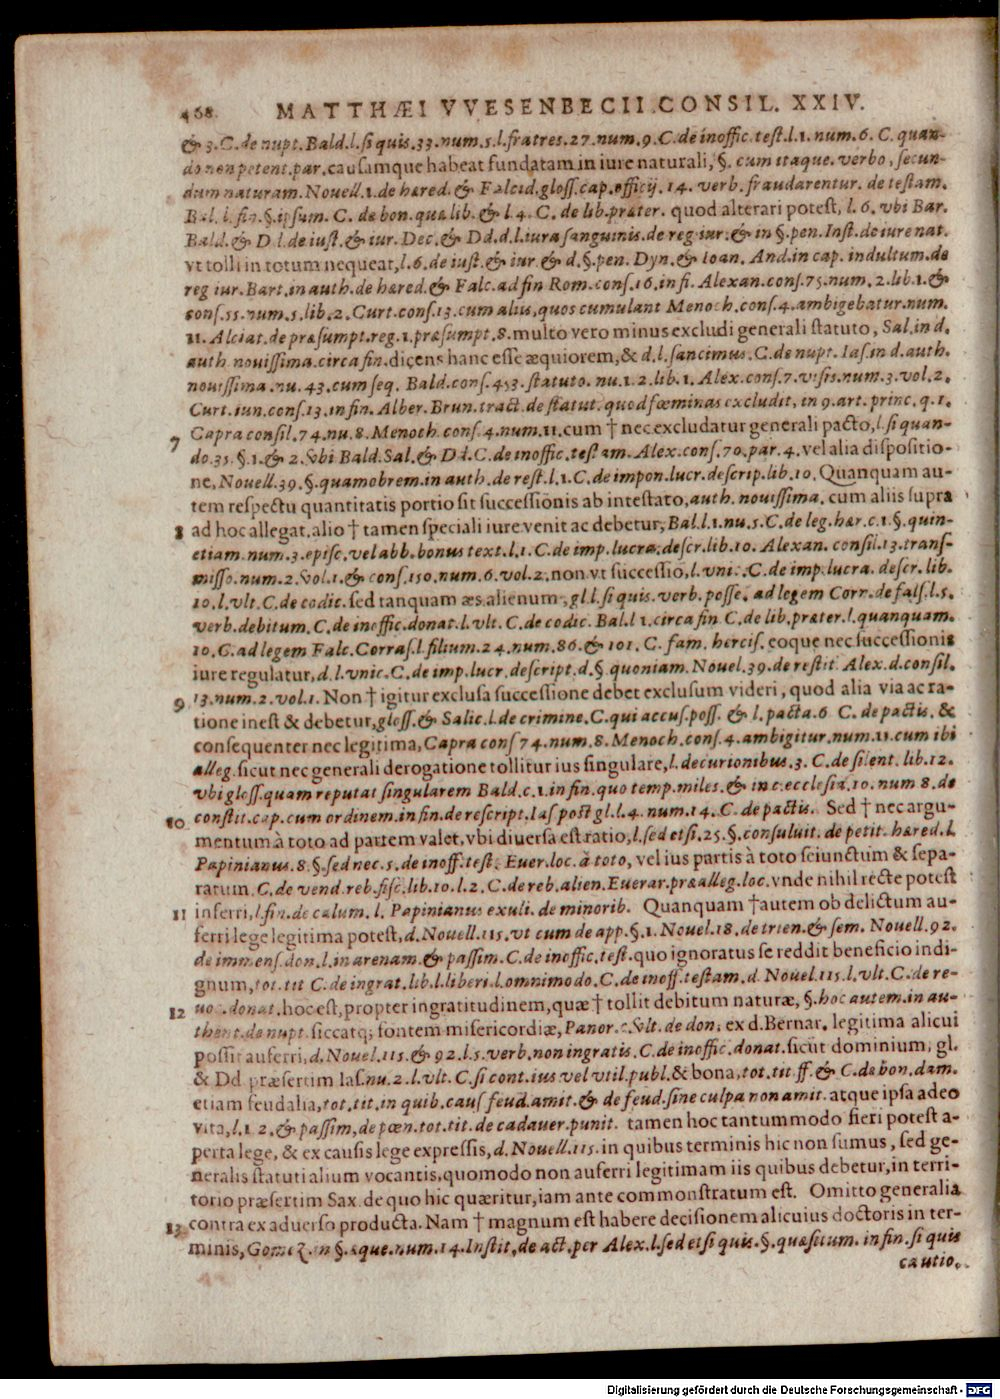 468. MATTHÆI VVESENBECII CONSIL. XXIV.
& 3. C. de nupt. Bald. l. si quis. 33. num. 5. l. fratres. 27. num. 9. C. de inoffic. test. l. 1. num. 6. C. quan-
do non petent. par. causamque habeat fundatam in iure naturali, §. cum itaque. verbo, secun-
dum naturam. Novell. 1. de hæred. & Falcid. gloss. cap. officij. 14. verb. fraudarentur. de testam.
Bal. l. fin. §. ipsum. C. de bon. quæ lib. & l. 4. C. de lib. præter. quod alterari potest, l. 6. vbi Bar.
Bald. & D l. de iust. & iur. Dec. & Dd. d. l. iura sanguinis. de reg iur. & in §. pen. Inst. de iure nat.
vt tolli in totum nequeat, l. 6. de iust. & iur & d. §. pen. Dyn. & Ioan. And. in cap. indultum. de
reg iur. Bart. in auth. de hæred. & Falc. ad fin Rom. cons. 16. in fi. Alexan. cons. 75. num. 2. lib. 1. &
cons. 55. num. 5. lib. 2. Curt. cons. 13. cum aliis, quos cumulant Menoch. cons. 4. ambigebatur. num.
11. Alciat. de præsumpt. reg. 1. præsumpt. 8. multo vero minus excludi generali statuto, Sal. in d.
auth. nouissima. circa fin. dicens hanc esse æquiorem, & d. l. sancimus. C. de nupt. Ias. in d. auth.
nouissima. nu. 43. cum seq. Bald. cons. 453. statuto. nu. 1. 2. lib. 1. Alex. cons. 7. visis. num. 3. vol. 2.
Curt. iun. cons. 13. in fin. Alber. Brun. tract. de statut. quod fœminas excludit, in 9. art. princ. q. 1.
7 Capra consil. 74. nu. 8. Menoch. cons. 4. num. 11. cum † nec excludatur generali pacto, l. si quan-
do. 35. §. 1. & 2. vbi Bald. Sal. & Dd. C. de inoffic. testam. Alex. cons. 70. par. 4. vel alia dispositio-
ne, Novell. 39. §. quamobrem. in auth. de rest. l. 1. C. de impon. lucr. descrip. lib. 10. Quanquam au-
tem respectu quantitatis portio sit successionis ab intestato, auth. nouissima. cum aliis supra
8 ad hoc allegat. alio † tamen speciali iure venit ac debetur, Bal. l. 1. nu. 5. C. de leg. hær. c. 1. §. quin-
etiam. num. 3. episc. vel abb. bonus text. l. 1. C. de imp. lucra. descr. lib. 10. Alexan. consil. 13. trans-
misso. num. 2. vol. 1. & cons. 150. num. 6. vol. 2. non vt successio, l. vni. C. de imp. lucra. descr. lib.
10. l. vlt. C. de codic. sed tanquam æs alienum, gl l. si quis. verb. posse. ad legem Corn. de fals. l. 5.
verb. debitum. C. de inoffic. donat. l. vlt. C. de codic. Bal. l 1. circa fin C. de lib. præter. l. quanquam.
10. C. ad legem Falc. Corras. l. filium. 24. num. 86. & 101. C. fam. hercis. eoque nec successionis
iure regulatur, d. l. vnic. C. de imp. lucr. descript. d. §. quoniam. Novel. 39. de restit. Alex. d. consil.
9 13. num. 2. vol. 1. Non † igitur exclusa successione debet exclusum videri, quod alia via ac ra-
tione inest & debetur, gloss. & Salic. l. de crimine. C. qui accus. poss. & l. pacta. 6 C. de pactis. &
consequenter nec legitima, Capra cons 74. num. 8. Menoch. cons. 4. ambigitur. num. 11. cum ibi
alleg. sicut nec generali derogatione tollitur ius singulare, l. decurionibus. 3. C. de silent. lib. 12.
vbi gloss. quam reputat singularem Bald. c. 1. in fin. quo temp. miles. & in c. ecclesia. 10. num 8. de
10 constit. cap. cum ordinem. in fin. de rescript. Ias post gl. l. 4. num. 14. C. de pactis. Sed † nec argu-
mentum à toto ad partem valet, vbi diversa est ratio, l. sed etsi. 25. §. consuluit. de petit. hæred. l.
Papinianus. 8. §. sed nec. 5. de inoff. test. Euer. loc. à toto, vel ius partis à toto sciunctum & sepa-
ratum. C. de vend. reb. fisc. lib. 10. l. 2. C. de reb. alien. Euerar. præalleg. loc. vnde nihil recte potest
11 inferri, l. fin. de calum. l. Papinianus exuli. de minorib. Quanquam † autem ob delictum au-
ferri lege legitima potest, d. Novell. 115. vt cum de app. §. 1. Novel. 18. de trien. & sem. Novell. 92.
de immens. don. l. in arenam. & passim. C. de inoffic. test. quo ignoratus se reddit beneficio indi-
gnum, tot. tit C. de ingrat. lib. l. liberi. l. omnimodo. C. de inoff. testam. d. Novel. 115. l. vlt. C. de re-
12 uoc. donat. hoc est, propter ingratitudinem, quæ † tollit debitum naturæ, §. hoc autem. in au-
thent. de nupt. siccatq; fontem misericordiæ, Panor. c. vlt. de don. ex d. Bernar. legitima alicui
possit auferri, d. Novel. 115. & 92. l. 5. verb. non ingratis. C. de inoffic. donat. sicut dominium, gl.
& Dd. præsertim Ias. nu. 2. l. vlt. C. si cont. ius vel vtil. publ. & bona, tot. tit. ff. & C. de bon. dam.
etiam feudalia, tot. tit. in quib. caus feud. amit. & de feud. sine culpa non amit. atque ipsa adeo
vita, l. 1. 2. & passim, de pœn. tot. tit. de cadauer. punit. tamen hoc tantummodo fieri potest a-
perta lege, & ex causis lege expressis, d. Novell. 115. in quibus terminis hic non sumus, sed ge-
neralis statuti alium vocantis, quomodo non auferri legitimam iis quibus debetur, in terri-
torio præsertim Sax. de quo hic quæritur, iam ante commonstratum est. Omitto generalia
13 contra ex aduerso producta. Nam † magnum est habere decisionem alicuius doctoris in ter-
minis, Gomez. in §. æque. num. 14. Instit. de act. per Alex. l. sed etsi quis. §. quæsitum. in fin. si quis
cautio.
Digitalisierung gefördert durch die Deutsche Forschungsgemeinschaft - DFG